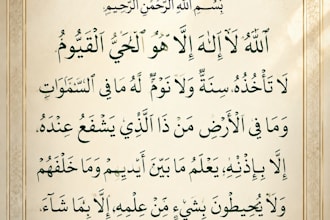 بِسْمِ اللَّهِ الرَّحْمَٰنِ الرَّحِيمِ
اللَّهُ لَا إِلَٰهَ إِلَّا هُوَ الْحَيُّ الْقَيُّومُ
لَا تَأْخُذُهُ سِنَةٌ وَلَا نَوْمٌ لَهُ مَا فِي السَّمَاوَاتِ
وَمَا فِي الْأَرْضِ مَنْ ذَا الَّذِي يَشْفَعُ عِنْدَهُ
إِلَّا بِإِذْنِهِ، يَعْلَمُ مَا بَيْنَ أَيْدِيهِمْ وَمَا خَلْفَهُمْ
وَلَا يُحِيطُونَ بِشَيْءٍ مِنْ عِلْمِهِ، إِلَّا بِمَا شَاءَ،